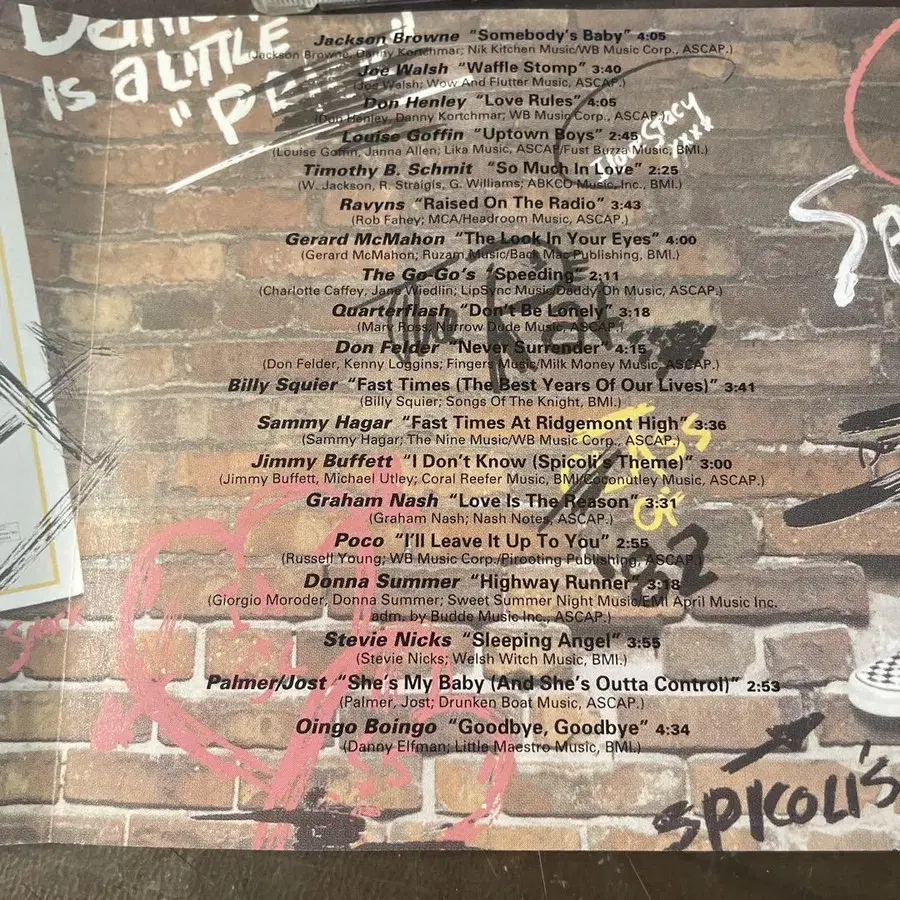 IS A LITTLE
Jackson Browne “Somebody’s Baby” 4:05
(Jackson Browne, Danny Kortchmar; Nik Kitchen Music/WB Music Corp., ASCAP.)
Joe Walsh “Waffle Stomp” 3:40
(Joe Walsh; Wow And Flutter Music, ASCAP.)
Don Henley “Love Rules” 4:05
(Don Henley, Danny Kortchmar; WB Music Corp., ASCAP.)
Louise Goffin “Uptown Boys” 2:45
(Louise Goffin, Janna Allen; Lika Music, ASCAP/Fust Buzza Music, BMI.)
Timothy B. Schmit “So Much In Love” 2:25
(W. Jackson, R. Straigis, G. Williams; ABKCO Music, Inc., BMI.)
Ravyns “Raised On The Radio” 3:43
(Rob Fahey; MCA/Headroom Music, ASCAP.)
Gerard McMahon “The Look In Your Eyes” 4:00
(Gerard McMahon; Ruzam Music/Back Mac Publishing, BMI.)
The Go-Go’s “Speeding” 2:11
(Charlotte Caffey, Jane Wiedlin; LipSync Music/Daddy Oh Music, ASCAP.)
Quarterflash “Don’t Be Lonely” 3:18
(Marv Ross; Narrow Dude Music, ASCAP.)
Don Felder “Never Surrender” 4:15
(Don Felder, Kenny Loggins; Fingers Music/Milk Money Music, ASCAP.)
Billy Squier “Fast Times (The Best Years Of Our Lives)” 3:41
(Billy Squier; Songs Of The Knight, BMI.)
Sammy Hagar “Fast Times At Ridgemont High” 3:36
(Sammy Hagar; The Nine Music/WB Music Corp., ASCAP.)
Jimmy Buffett “I Don’t Know (Spicoli’s Theme)” 3:00
(Jimmy Buffett, Michael Utley; Coral Reefer Music, BMI/Coconutley Music, ASCAP.)
Graham Nash “Love Is The Reason” 3:31
(Graham Nash; Nash Notes, ASCAP.)
Poco “I’ll Leave It Up To You” 2:55
(Russell Young; WB Music Corp./Pirooting Publishing, ASCAP.)
Donna Summer “Highway Runner” 3:18
(Giorgio Moroder, Donna Summer; Sweet Summer Night Music/EMI April Music Inc.
adm. by Budde Music Inc., ASCAP.)
Stevie Nicks “Sleeping Angel” 3:55
(Stevie Nicks; Welsh Witch Music, BMI.)
Palmer/Jost “She’s My Baby (And She’s Outta Control)” 2:53
(Palmer, Jost; Drunken Boat Music, ASCAP.)
Oingo Boingo “Goodbye, Goodbye” 4:34
(Danny Elfman; Little Maestro Music, BMI.)
The Rat
OF
'82
SPICOLI'S